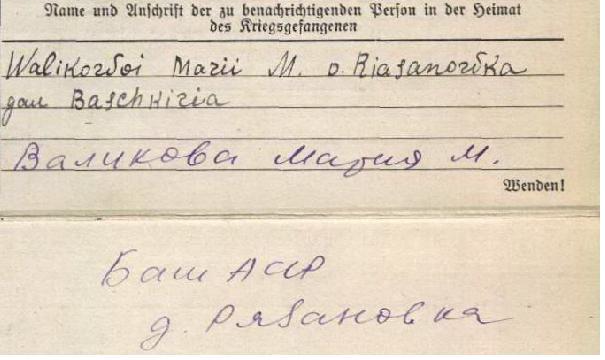 Name und Anschrift der zu benachrichtigenden Person in der Heimat
des Kriegsgefangenen
Walikowoi Marii M. D. Riasanowka
Baschkiria
Валикова Мария М.
Wenden!
Баш АССР
д. Рязановка